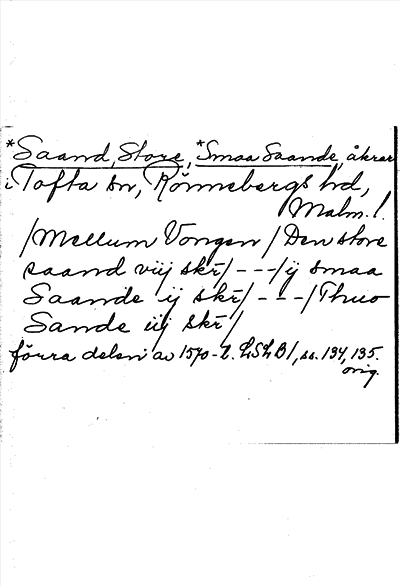 *Saand, Store, *Smaa Saande, åkrar
i Tofta sn, Rönnebergs hd,
Malm. l.
/Mellum Vongen/Den store
saand viij skr/---/ij smaa
Saande ij skr/---/Thuo
Sande iij skr/
förra delen av 1570-t. LSLB1, ss. 134, 135.
orig.